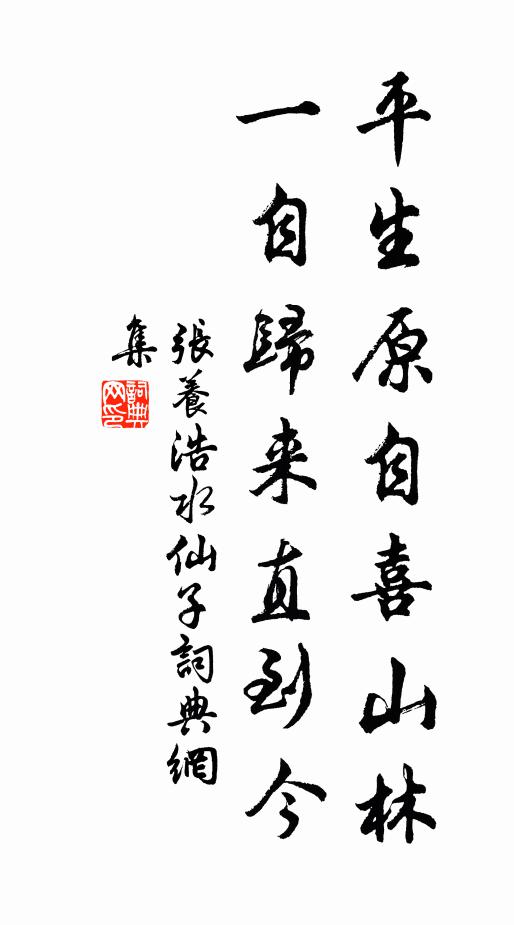 平生原自喜山林
一自歸来直到今
張養浩水仙子詞典網
集
詞典
网印